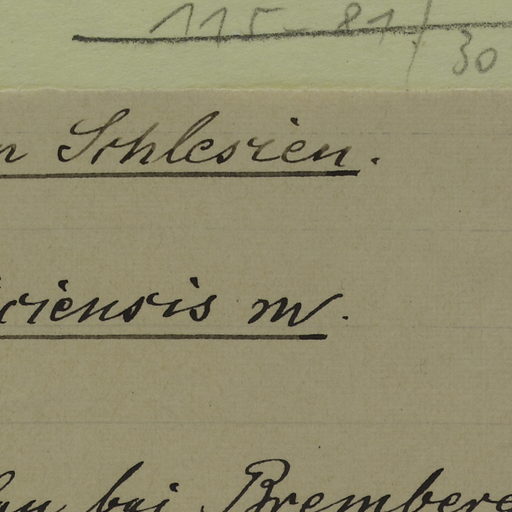 115-81/30
n Schlesien.
ciensis m.
bei Bremberg